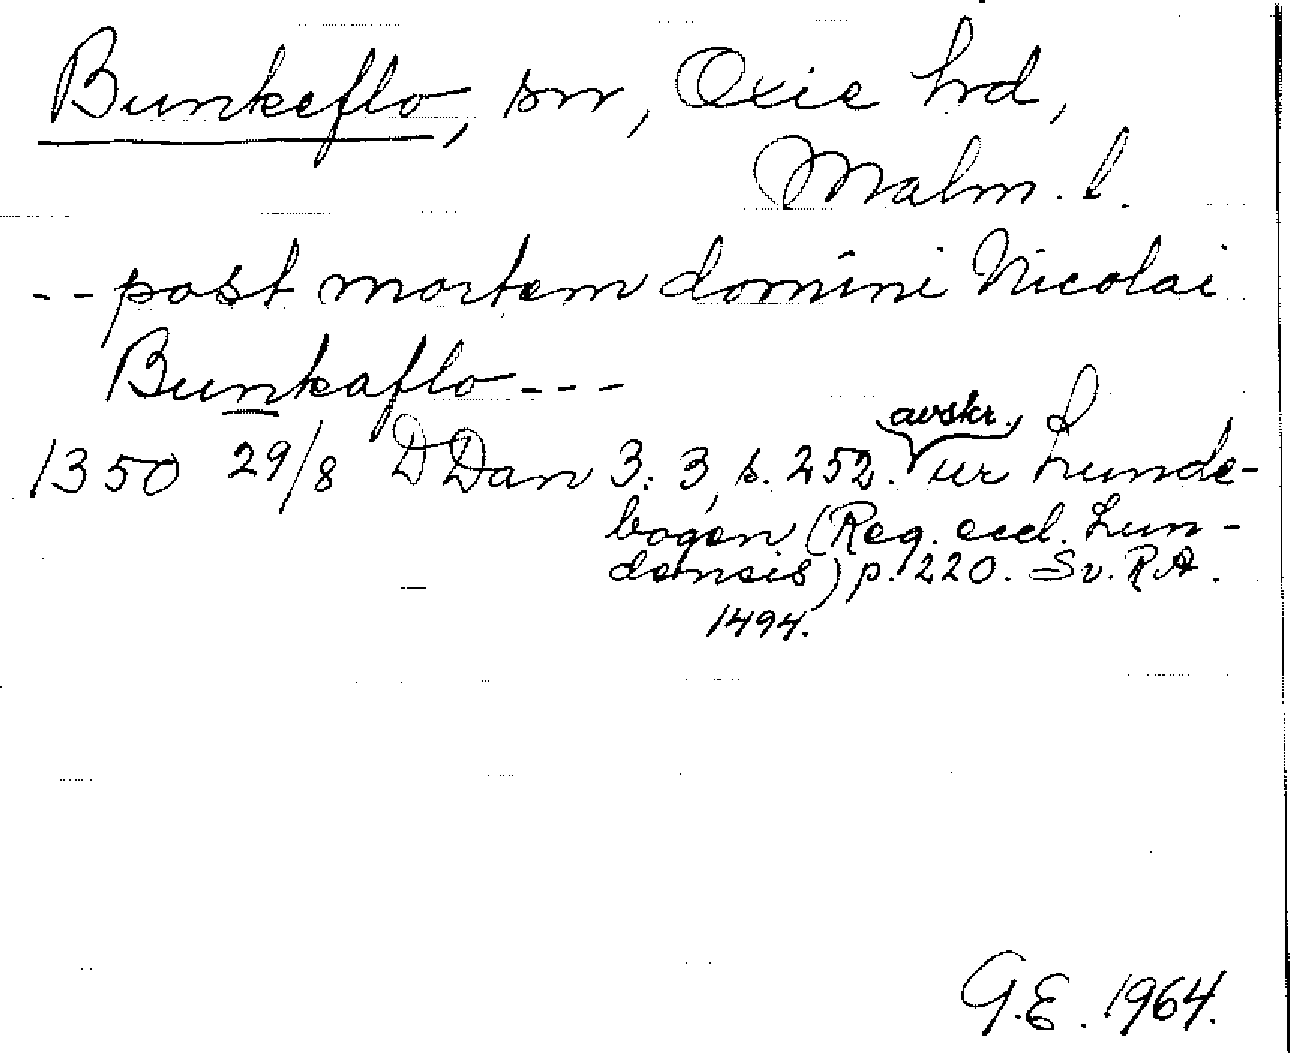 Bunkeflo, sn, Oxie hd,
Malm. l.
-- post mortem domini Nicolai
Bunkaflo ---
1350 29/8 DDan 3. 3, s. 252. avskr. ur Lunde-
bogen (Reg. eccl. Lun-
densis) p. 220. Sv. R.A.
1494.
G.E. 1964.